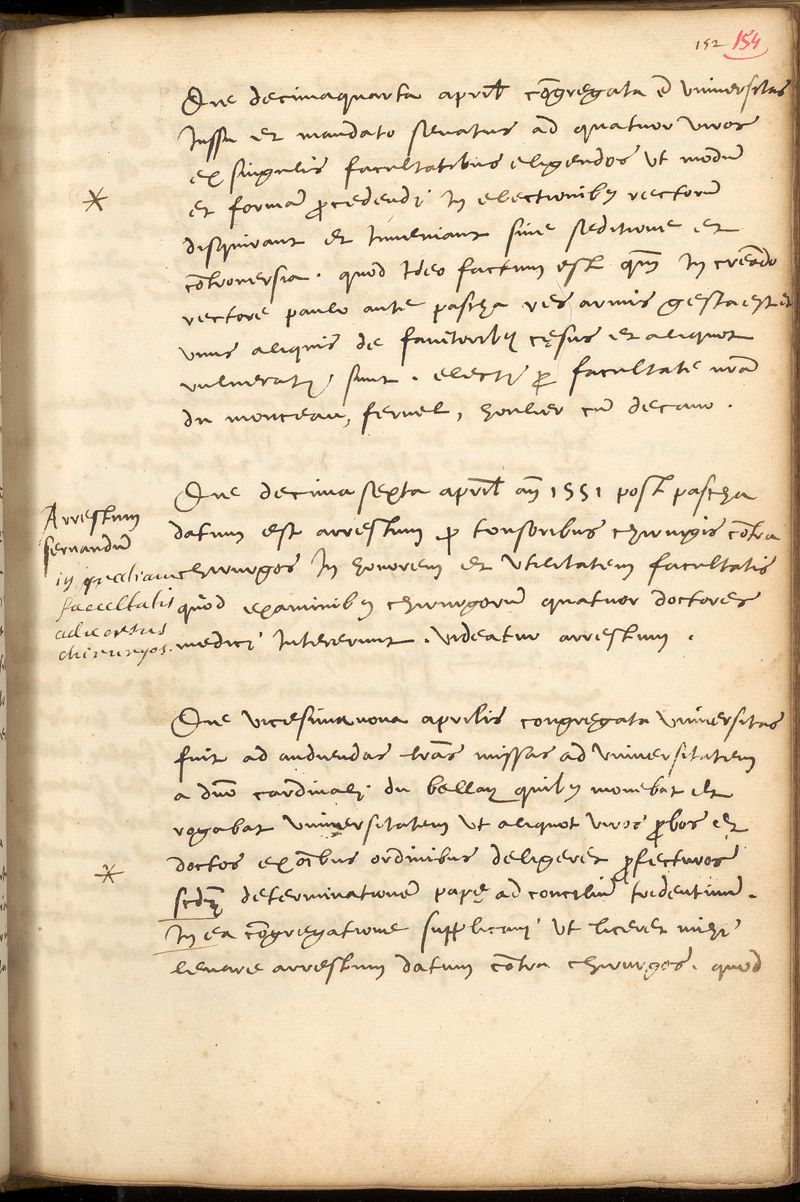 152 154
Die decimaquarta april̃ cõgregata ẽ vniuersitas
Jussu et mandato senatus ad quatuor viros
ex singulis facultatibus eligendos vt modũ
et formã ꝓcedendj In electionibꝰ rectorũ
disquirant et Inueniant sine seditione et
cõtrouersia . quod Ideo factum est qm̃ In creãdo
rectore paulo ante pascha res armis gesta est et
vnus aliquis de fautoribꝰ cęsus et aliquot
vulneratj sunt . electj ꝓ facultate nrã
du monceau, fernel, houlier cũ decano .
Die decima sexta april̃ añ 1551 post pascha
datum est arrestum ꝓ tonsoribus chirurgis cõtra
chirurgos In honorem et vtilitatem facultatis
quod examinibꝰ chirurgorũ quatuor doctores
medicj Intererunt . videatur arrestum .
Arrestum
seruandũ
in gratiam
facultatis
aduersus
chirurgos.
Die vicesimanona aprilis congregata vniuersitas
fuit ad audiendas lrãs missas ad vniuersitatem
a dño cardinalj du bellay quibꝰ monebat et
rogabat vniuersitatem vt aliquot viros ꝓbos et
doctos ex oĩbus ordinibus deligeret ꝓfecturos
scdm̃ determinationẽ papę ad conciliũ tridentinũ .
In ea cõgregatione supplicauj vt liceret mihi
leuare arrestum datum cõtra chirurgos . quod